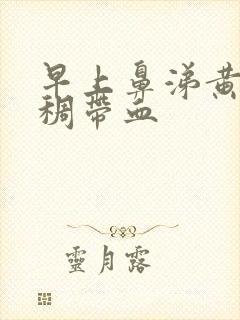 早上鼻涕黄
稠带血
靈月露